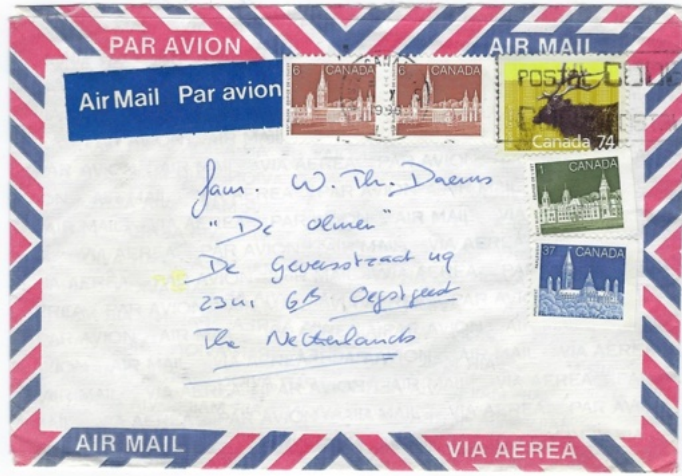 PAR AVION
AIR MAIL
Air Mail Par avion
6 CANADA
6 CANADA
POSTAL CODE
Canada 74
1 CANADA
37 CANADA
fam. W. Th. Daems
"De Olmen"
De Geversstraat 49
GB Oegstgeest
The Netherlands
AIR MAIL
VIA AEREA